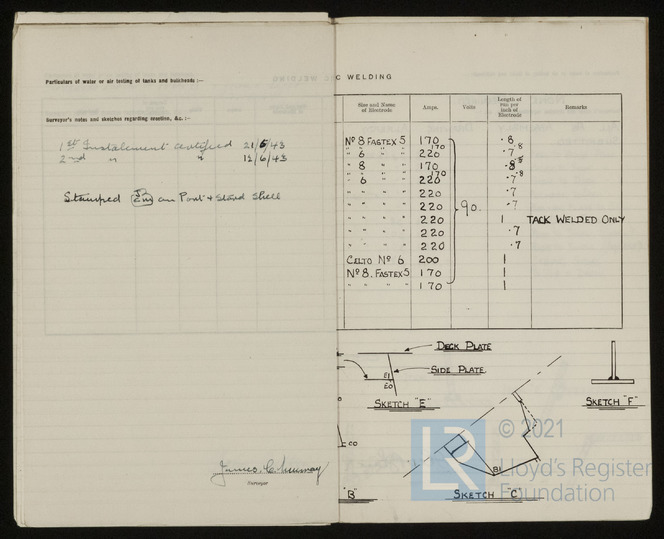 Particulars of water or air testing of tanks and bulkheads :—
Surveyor's notes and sketches regarding scantline, &c. :—
1st Instalment certified 21/5/43
2nd " " 12/6/43
Stamped on Port & Starbd Shell
Surveyor
C WELDING
Size and Name of Electrode Amps. Volts Length of run per inch of Electrode Remarks
Nº 8 FASTEX 5 170 ·8
" 6 " " 220 170 ·7 ·8
" 8 " " 170 ·8
" 6 " " 220 170 ·7 ·8
" " " " 220 ·7
" " " " 220 90. ·7
" " " " 220 1 TACK WELDED ONLY
" " " " 220 ·7
" " " " 220 ·7
CALTO Nº 6 200 1
Nº 8. FASTEX 5 170 1
" " " " 170 1
DECK PLATE
SIDE PLATE
E1
E0
SKETCH "E"
SKETCH "F"
CO
B1
"B"
SKETCH "C"
LR
© 2021
Lloyd's Register
Foundation